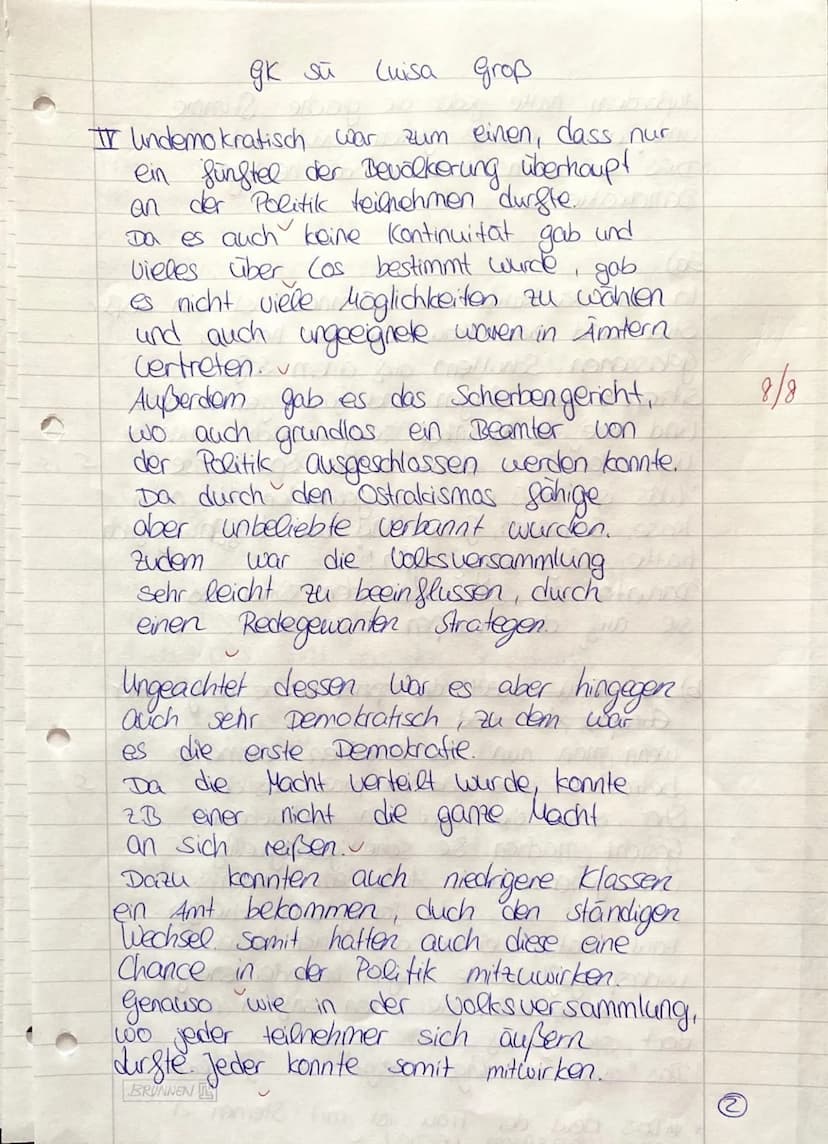 GK SÜ Luisa Groß
IV Undemokratisch war zum einen, dass nur
ein fünftel der Bevölkerung überhaupt
an der Politik teilnehmen durfte.
Da es auch keine Kontinuität gab und
vieles über Los bestimmt wurde, gab
es nicht viele Möglichkeiten zu wählen
und auch ungeeignete waren in Ämtern
vertreten.
Außerdem gab es das Scherbengericht,
wo auch grundlos ein Beamter von
der Politik ausgeschlossen werden konnte.
Da durch den Ostrakismos fähige
aber unbeliebte verbannt wurden.
Zudem war die Volksversammlung
sehr leicht zu beeinflussen, durch
einen Redegewanten Strategen.
8/8
Ungeachtet dessen war es aber hingegen
auch sehr Demokratisch, zu dem war
es die erste Demokratie.
Da die Macht verteilt wurde, konnte
zB einer nicht die ganze Macht
an sich reißen.
Dazu konnten auch niedrigere Klassen
ein Amt bekommen, duch den ständigen
Wechsel somit hatten auch diese eine
Chance in der Politik mitzuwirken.
Genauso wie in der Volksversammlung,
wo jeder teilnehmer sich äußern
durfte. Jeder konnte somit mitwirken.
BRUNNEN
2